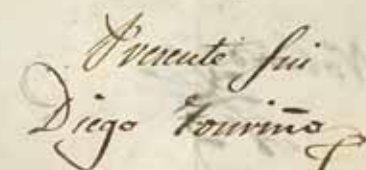 Presente fui
Diego Touriño